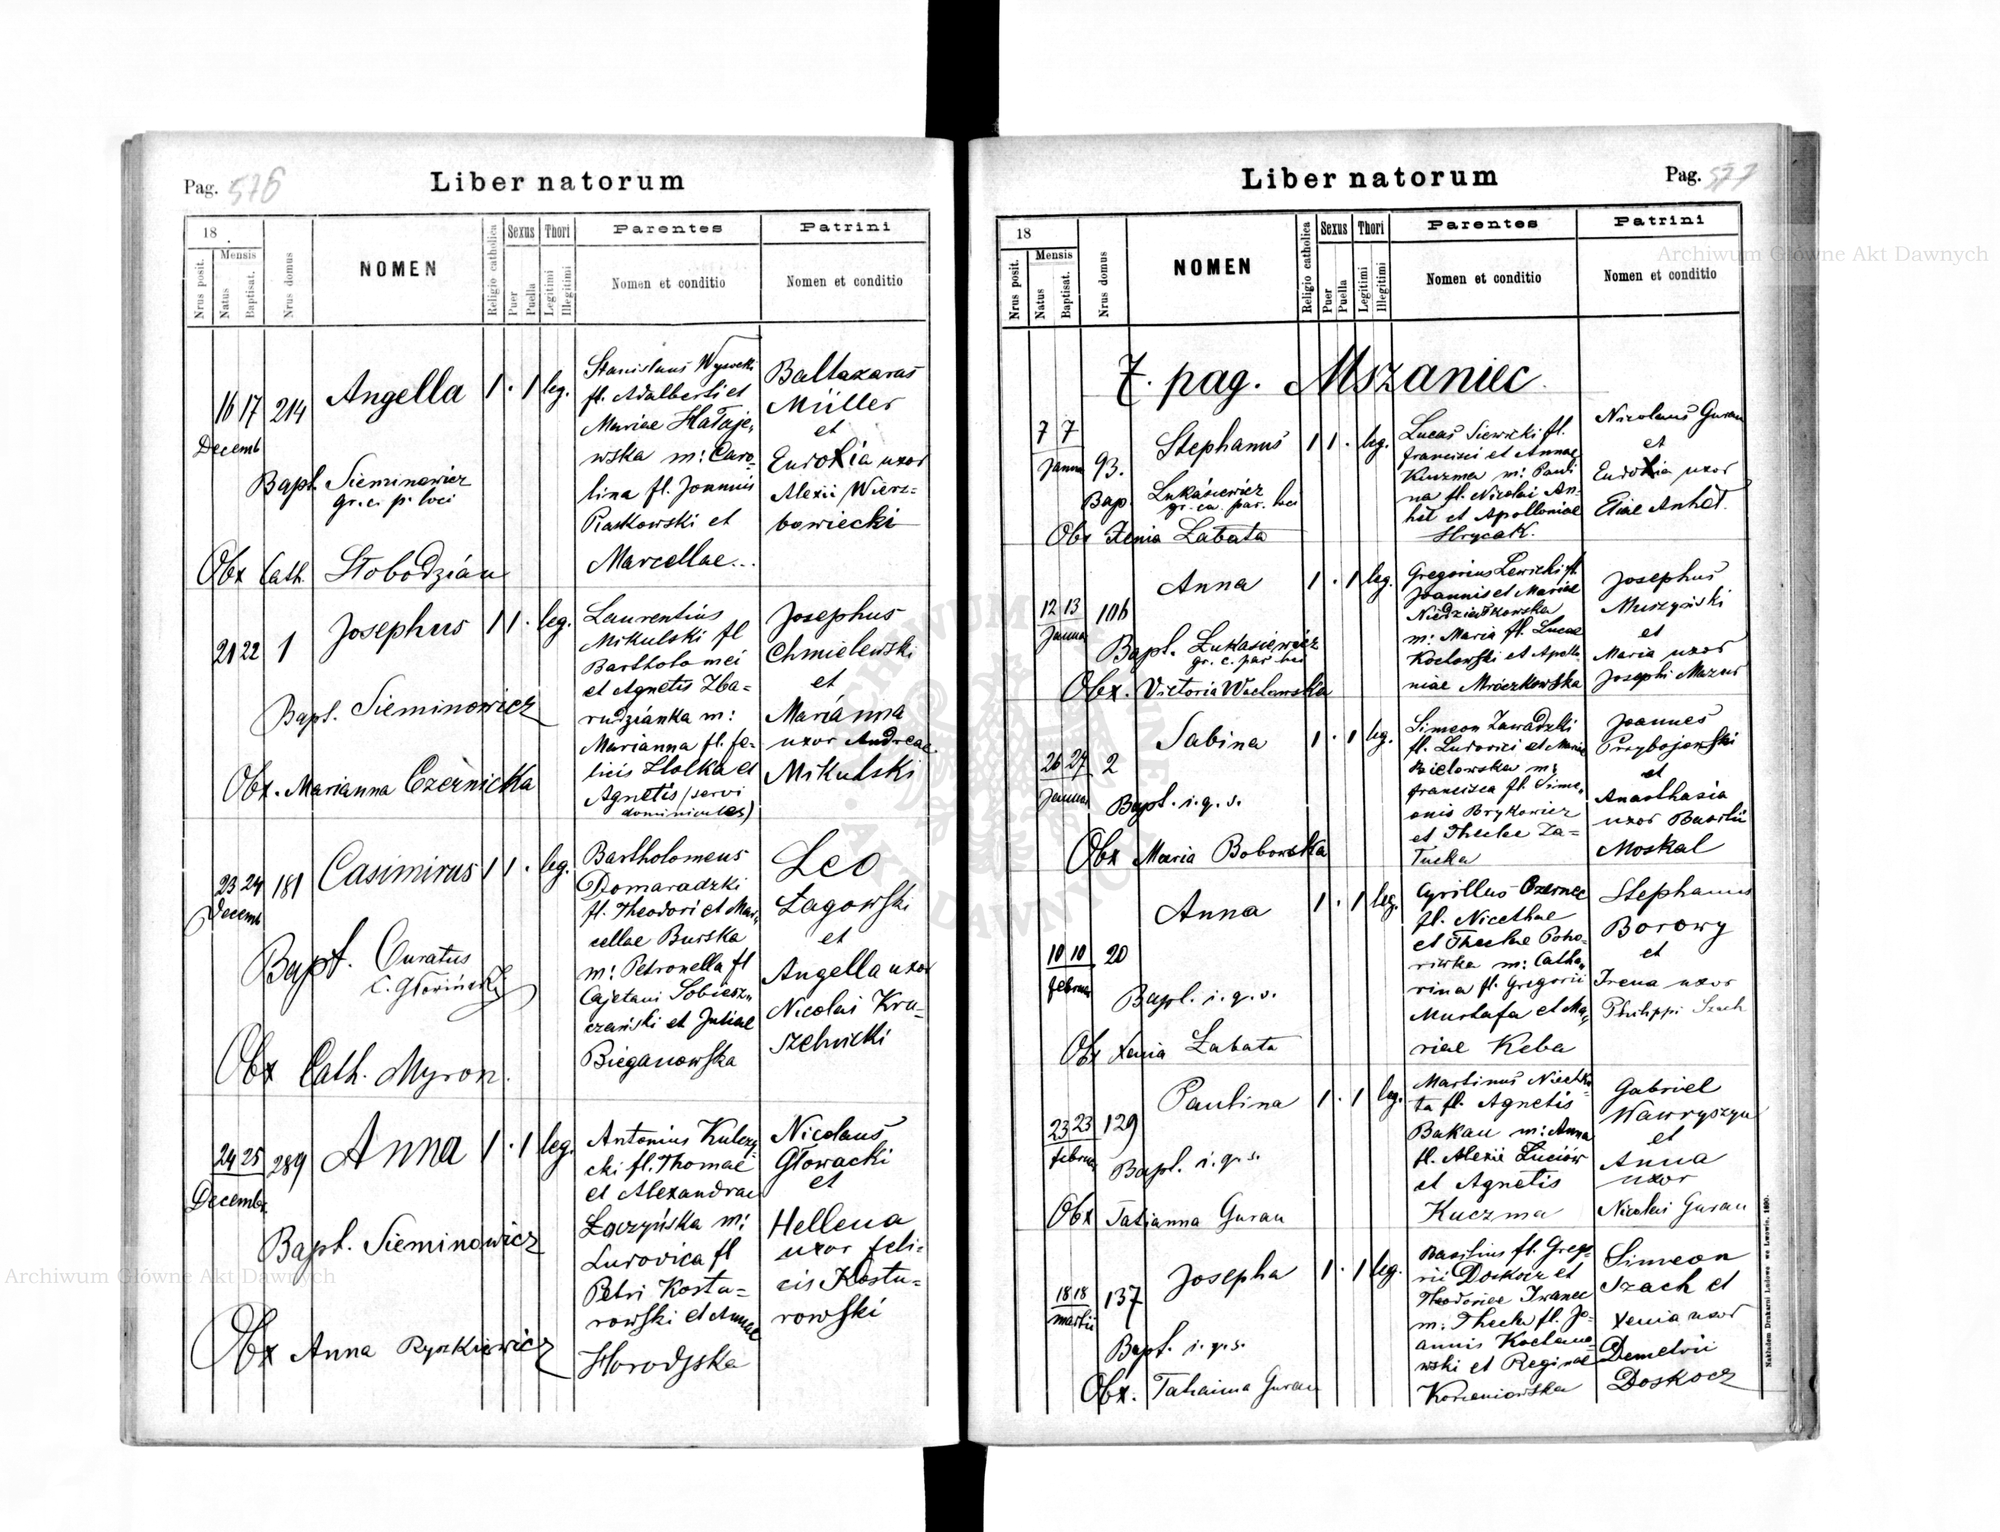 Pag. 576
Liber natorum
18
Nrus posit.
Mensis
Natus
Baptisat.
Nrus domus
NOMEN
Religio catholica
Sexus
Puer
Puella
Thori
Legitimi
Illegitimi
Parentes
Nomen et conditio
Patrini
Nomen et conditio
16 17 214 Angella 1 . 1 leg.
Decemb
Bapt. Sieminowicz
gr. c. p. loci
Obx Cath. Słobodzian
Stanislaus Wysocki
fl. Adalberti et
Mariae Hałaje,
wska m: Caro-
lina fl. Joannis
Piaskowski et
Marcellae...
Baltazarus
Müller
et
Eudoxia uxor
Alexii Wierz-
bowiecki
21 22 1 Josephus 1 1 . leg.
Bapt. Sieminowicz
Obx. Marianna Czernicka
Laurentius
Mikulski fl
Bartholomei
et Agnetis Zba-
rudzianka m:
Marianna fl. fe-
licis Hołka et
Agnetis (servi
dominicales)
Josephus
Chmielewski
et
Marianna
uxor Andreae
Mikulski
23 24 181 Casimirus 1 1 . leg.
Decemb
Bapt. Curatus
Obx Cath. Myron.
Bartholomeus
Domaradzki
fl. Theodori et Mar,
cellae Burska
m: Petronella fl
Cajetani Sobiesz,
czański et Juliae
Bieganowska
Leo
Łagowski
et
Angella uxor
Nicolai Kru-
szelnicki
24 25 289 Anna 1 . 1 leg.
Decembr
Bapt. Sieminowicz
Obx Anna Ryszkiewicz
Antonius Kulczy
cki fl. Thomae
et Alexandrae
Łączyńska m:
Ludovica fl
Petri Kostu-
rowski et Annae
Horodyska
Nicolaus
Głowacki
et
Hellena
uxor feli-
cis Kostu-
rowski
Liber natorum
Pag. 577
18
Nrus posit.
Mensis
Natus
Baptisat.
Nrus domus
NOMEN
Religio catholica
Sexus
Puer
Puella
Thori
Legitimi
Illegitimi
Parentes
Nomen et conditio
Patrini
Nomen et conditio
7. pag. Mszaniec.
7 7 93. Stephanus 1 1 . leg.
Januar
Bap. Lukasiewicz
gr. ca. par. loci
Obx Xenia Labata
Lucas Siewicki fl.
francisci et Annae
Kuzma m: Pauli
na fl. Nicolai An-
het et Apolloniae
Hrycak.
Nicolaus Guran
et
Eudoxia uxor
Eliae Anhet.
12 13 106 Anna 1 . 1 leg.
Januar
Bapt. Łukasiewicz
gr. c. par loci
Obx. Victoria Wocławska
Gregorius Lewicki fl.
Joannis et Mariae
Niedzwiadkowska
m: Maria fl. Lucae
Kozłowski et Apollo
niae Mroczkowska
Josephus
Muszyński
et
Maria uxor
Josephi Mazur
26 27 2 Sabina 1 . 1 leg.
Januar
Bapt. i. q. s.
Obx Maria Bobowska
Simeon Zawadzki
fl. Ludovici et Mariae
Bielowska m:
francisca fl. Sime,
onis Brykowicz
et Theclae Za-
Tucka
Joannes
Przybojewski
et
Anasthasia
uxor Basilii
Moskal
10 10 20 Anna 1 . 1 leg.
februar
Bapt. i. q. s.
Obx Xenia Labata
Cyrillus Czernec
fl. Nicethae
et Theclae Poho-
riwka m: Catha,
rina fl. Gregorii
Mustafa et Ma,
riae Keba
Stephanus
Borowy
et
Irena uxor
Philippi Szach
23 23 129 Paulina 1 . 1 leg.
februar
Bapt. i. q. s.
Obx Tatianna Guran
Martinus
ta fl. Agnetis
Bakan m: Anna
fl. Alexii Luciów
et Agnetis
Kuczma
Gabriel
Wawryszyn
et
Anna
uxor
Nicolai Guran
18 18 137 Josepha 1 . 1 leg.
martii
Bapt. i. q. s.
Obx. Tatianna Guran
Basilius fl. Grego-
rii Doskocz et
Theodorice Iwanec
m: Thecla fl. Jo-
annis Kozłano-
wski et Reginae
Korzeniowska
Simeon
Szach et
Xenia uxor
Demetrii
Doskocz
Nakładem Drukarni Ludowe we Lwowie. 1890.
Archiwum Główne Akt Dawnych
Archiwum Główne Akt Dawnych
ARCHIWUM GŁÓWNE AKT DAWNYCH